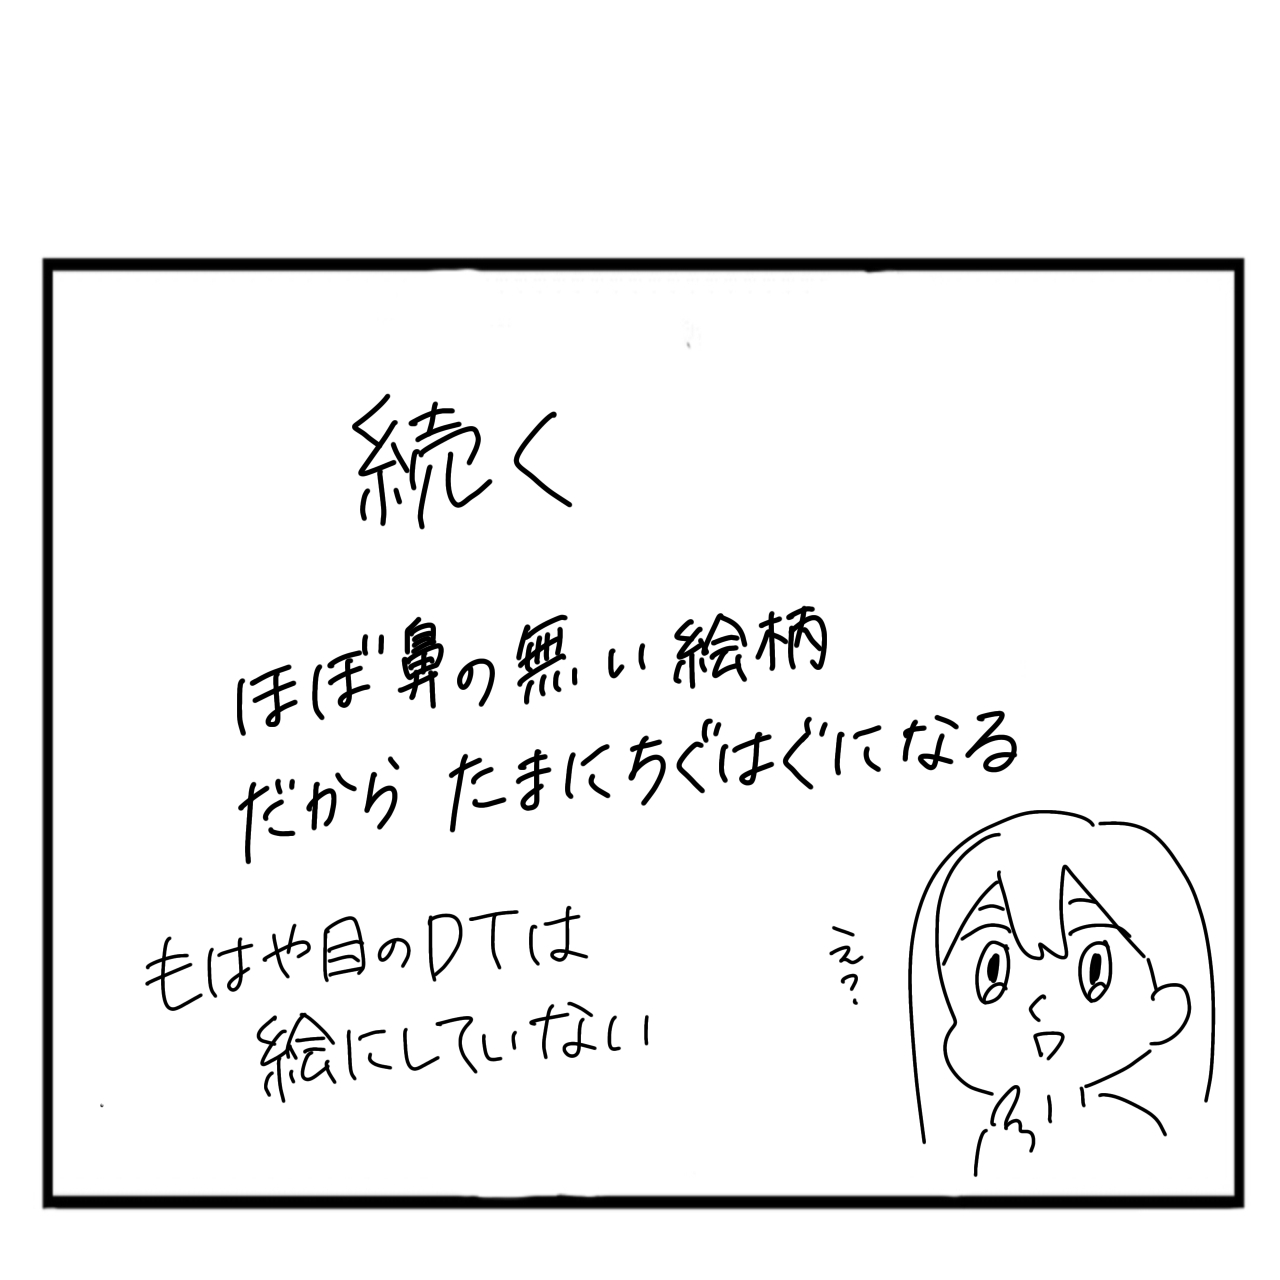 続く
ほぼ鼻の無い絵柄
だから たまにちぐはぐになる
もはや目のDTは
絵にしていない
え?